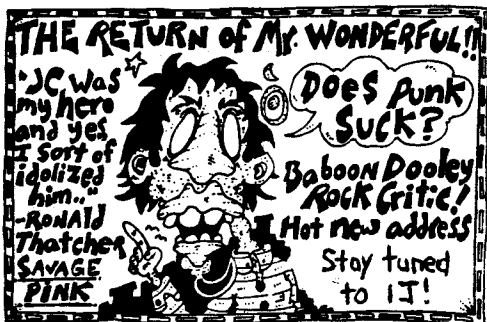 THE RETURN of Mr. WONDERFUL!!
"JC was
my hero
and yes
I sort of
idolized
him.."
-RONALD
Thatcher
SAVAGE
PINK
Does Punk
SUCK?
Baboon Dooley
ROCK CRITIC!
Hot new address
Stay tuned
to IJ!